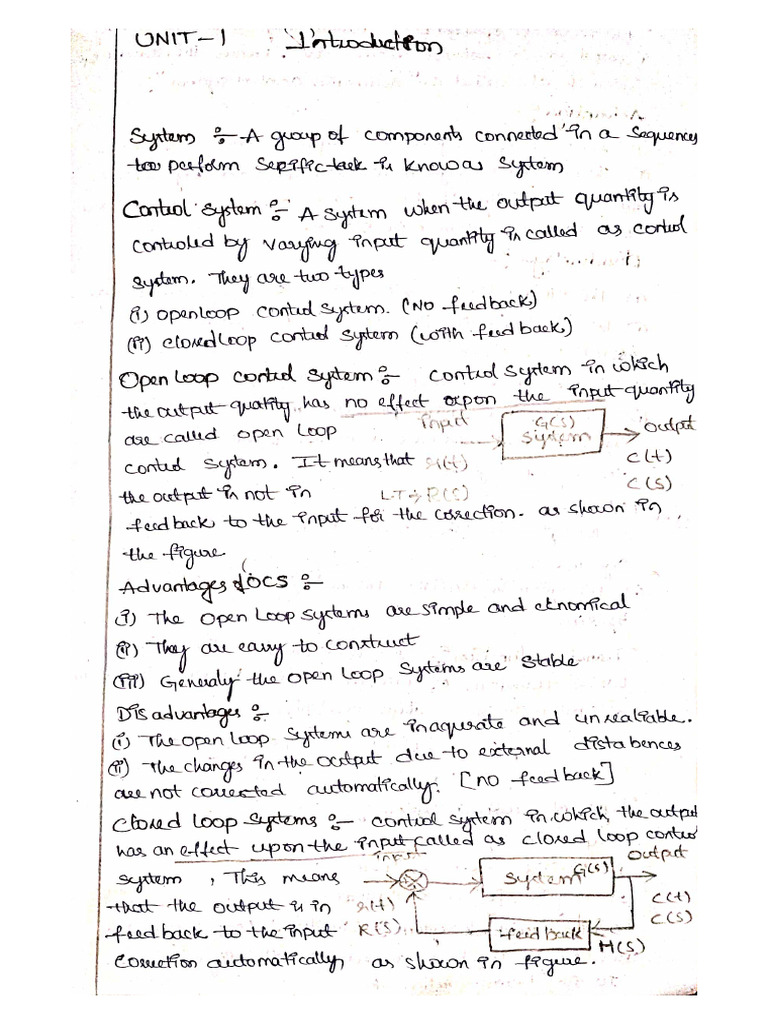 UNIT-1 Introduction
System :- A group of components connected in a Sequences
too perform Sepific task is known as System
Control system :- A system when the output quantity is
controled by varying input quantity is called as control
system. They are two types
(i) open loop control system. (No feedback)
(ii) closed loop control system (with feedback)
Open loop control system :- control system in which
the output quatity has no effect oxpon the input quantity
are called open loop
input
G(S)
System
output
control system. It means that
r(t)
C(t)
the output is not in
LT → R(S)
C(S)
feedback to the input for the corection. as shown in
the figure
Advantages of OCS :-
(i) The open Loop systems are simple and eknomical
(ii) They are easy to construct
(iii) Generaly the open Loop Systems are Stable
Dis advantages :-
(i) The open Loop Systems are inaqurate and unrealiable.
(ii) The changes in the output due to external distabences
are not corrected automatically. [no feedback]
Closed loop systems :- control system in which, the output
has an effect upon the input called as closed loop control
input
output
system, This means
System
G(S)
that the output is in
r(t)
C(t)
C(S)
feedback to the input
R(S)
feedback
H(S)
Corection automatically as shown in figure.